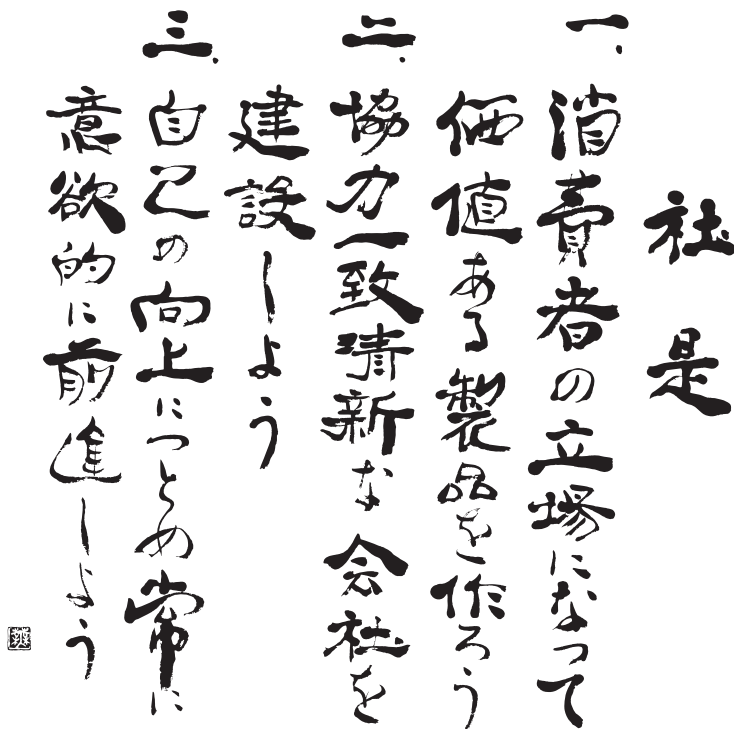 社是
一、消費者の立場になって
価値ある製品を作ろう
二、協力一致清新な会社を
建設しよう
三、自己の向上につとめ常に
意欲的に前進しよう